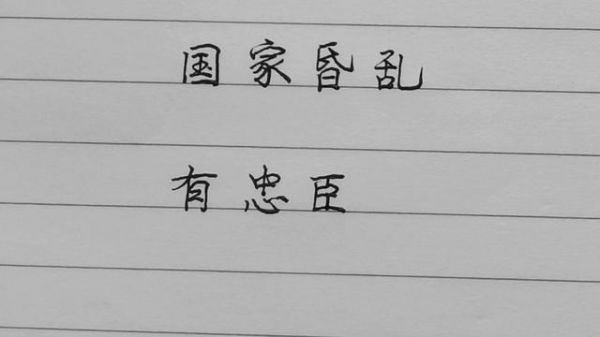 国家昏乱
有忠臣